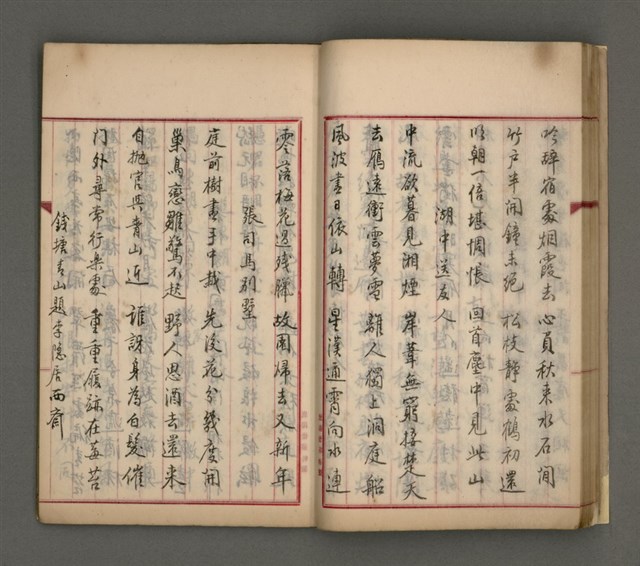 吟辭宿處烟霞去　心負秋來水石閒
竹戶半開鐘未絕　松枝靜處鶴初還
明朝一倍堪惆悵　回首塵中見此山
湖中送友人
中流欲暮見湘煙　岸葦無窮接楚天
去雁遠衝雲夢雪　離人獨上洞庭船
風波盡日依山轉　星漢通霄向水連
零落梅花過殘臘　故園歸去又新年
張司馬別墅
庭前樹盡手中栽　先後花分幾度開
巢鳥戀雛驚不起　野人思酒去還來
自拋官與青山近　誰訝身為白髮催
门外尋常行樂處　重重履跡在莓苔
錢塘青山題李隱居西齋